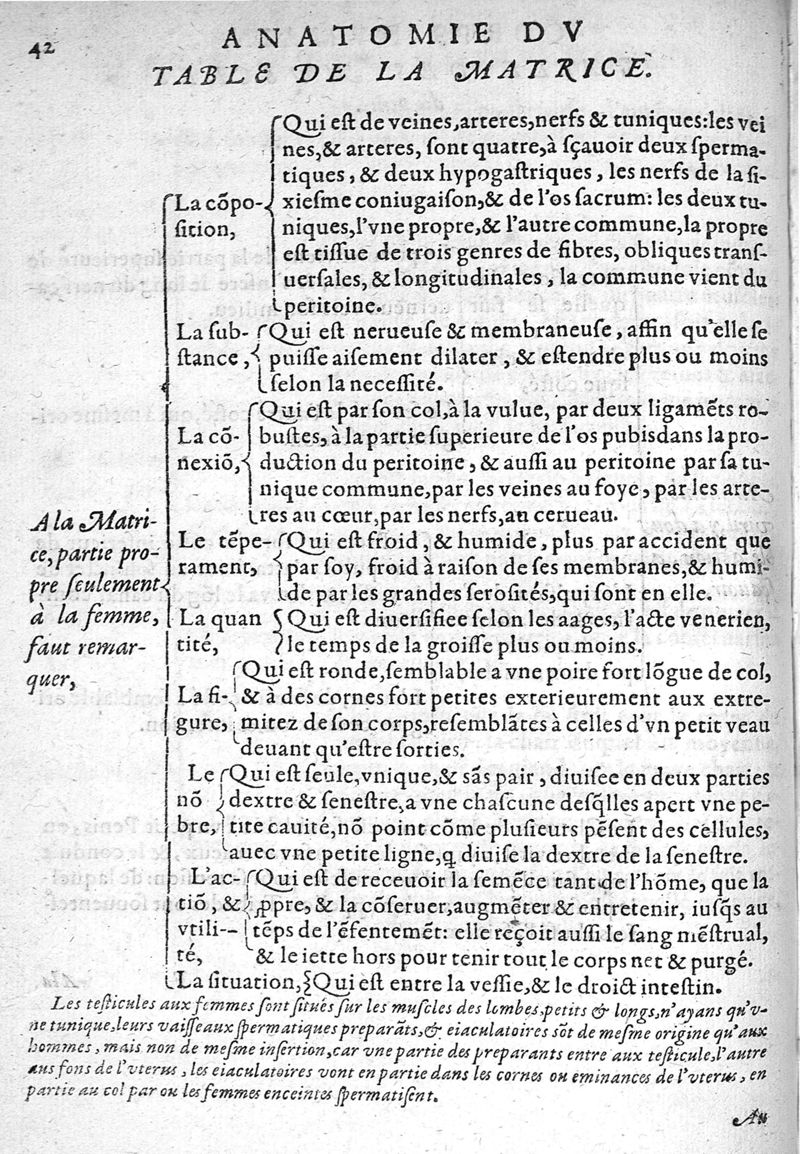 42
ANATOMIE DV
TABLE DE LA MATRICE.
A la Matri-
ce, partie pro-
pre seulement
à la femme,
faut remar-
quer,
La cõpo-
sition,
Qui est de veines, arteres, nerfs & tuniques: les vei
nes, & arteres, sont quatre, à sçauoir deux sperma-
tiques, & deux hypogastriques, les nerfs de la si-
xiesme coniugaison, & de l'os sacrum: les deux tu-
niques, l'vne propre, & l'autre commune, la propre
est tissue de trois genres de fibres, obliques trans-
uersales, & longitudinales, la commune vient du
peritoine.
La sub-
stance,
Qui est nerueuse & membraneuse, affin qu'elle se
puisse aisement dilater, & estendre plus ou moins
selon la necessité.
La cõ-
nexiõ,
Qui est par son col, à la vulue, par deux ligamẽts ro-
bustes, à la partie superieure de l'os pubis dans la pro-
duction du peritoine, & aussi au peritoine par sa tu-
nique commune, par les veines au foye, par les arte-
res au cœur, par les nerfs, au cerueau.
Le tẽpe-
rament,
Qui est froid, & humide, plus par accident que
par soy, froid à raison de ses membranes, & humi-
de par les grandes serosités, qui sont en elle.
La quan
tité,
Qui est diuersifiee selon les aages, l'acte venerien,
le temps de la groisse plus ou moins.
La fi-
gure,
Qui est ronde, semblable a vne poire fort lõgue de col,
& à des cornes fort petites exterieurement aux extre-
mitez de son corps, resemblãtes à celles d'vn petit veau
deuant qu'estre sorties.
Le
nõ
bre,
Qui est seule, vnique, & sãs pair, diuisee en deux parties
dextre & senestre, a vne chascune desq̃lles apert vne pe-
tite cauité, nõ point cõme plusieurs pẽsent des cellules,
auec vne petite ligne, q̃ diuise la dextre de la senestre.
L'ac-
tiõ, &
vtili--
té,
Qui est de receuoir la semẽce tant de l'hõme, que la
ꝓpre, & la cõseruer, augmẽter & entretenir, iusq̃s au
tẽps de l'ẽfentemẽt: elle reçoit aussi le sang mẽstrual,
& le iette hors pour tenir tout le corps net & purgé.
La situation, Qui est entre la vessie, & le droict intestin.
Les testicules aux femmes sont situés sur les muscles des lombes, petits & longs, n'ayans qu'v-
ne tunique, leurs vaisseaux spermatiques preparãts, & eiaculatoires sõt de mesme origine qu'aux
hommes, mais non de mesme insertion, car vne partie des preparants entre aux testicule, l'autre
aus fons de l'vterus, les eiaculatoires vont en partie dans les cornes ou eminances de l'vterus, en
partie au col par ou les femmes enceintes spermatisent.
An